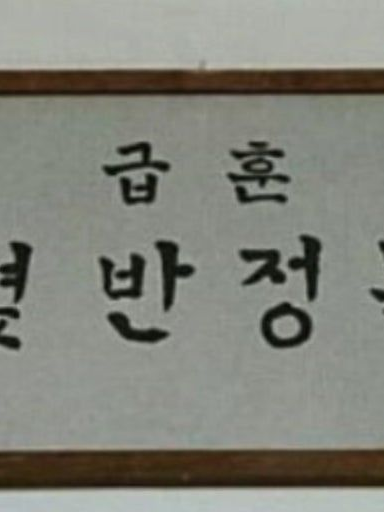 급훈
반정